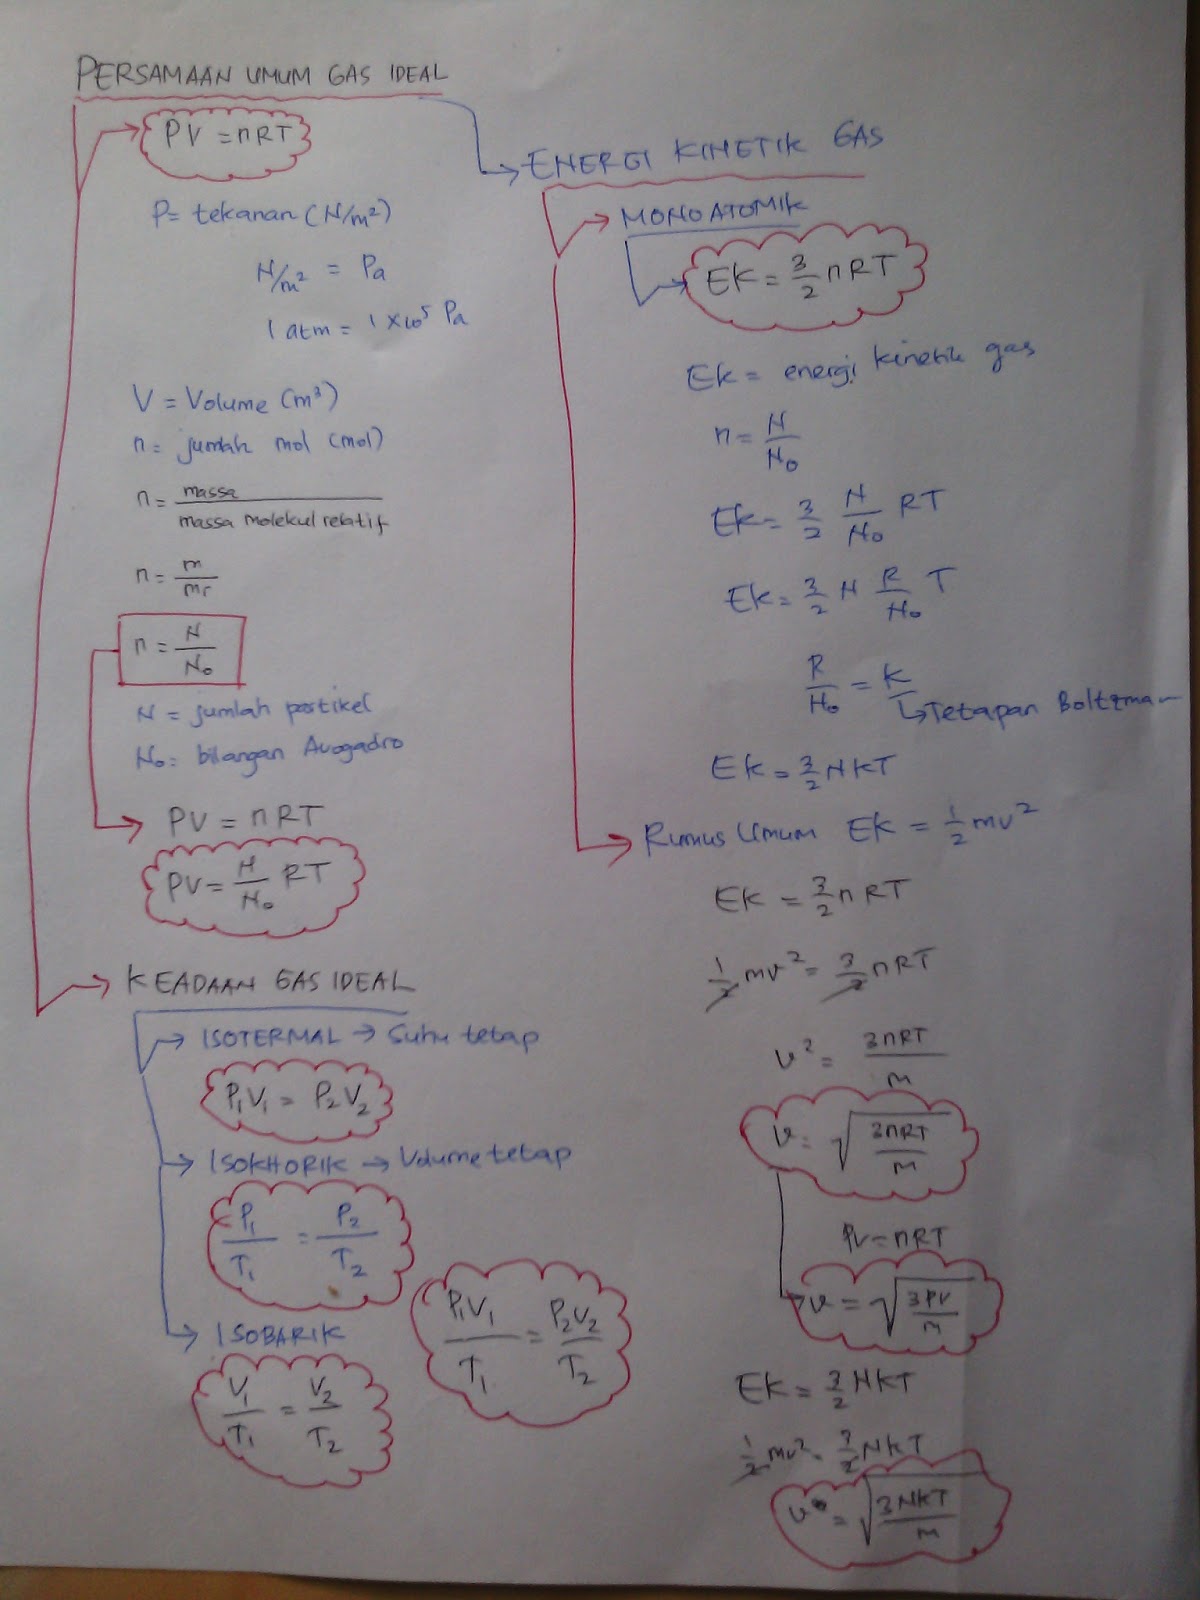 PERSAMAAN UMUM GAS IDEAL
PV = nRT
P = tekanan (N/m²)
N/m² = Pa
1 atm = 1 × 10⁵ Pa
V = Volume (m³)
n = jumlah mol (mol)
n = massa / massa molekul relatif
n = m / mr
n = N / N₀
N = jumlah partikel
N₀ = bilangan Avogadro
PV = nRT
PV = N/N₀ RT
KEADAAN GAS IDEAL
ISOTERMAL → Suhu tetap
P₁V₁ = P₂V₂
ISOKHORIK → Volume tetap
P₁/T₁ = P₂/T₂
ISOBARIK
V₁/T₁ = V₂/T₂
P₁V₁/T₁ = P₂V₂/T₂
ENERGI KINETIK GAS
MONOATOMIK
EK = 3/2 nRT
Ek = energi kinetik gas
n = N/N₀
Ek = 3/2 N/N₀ RT
Ek = 3/2 N R/N₀ T
R/N₀ = K
↳ Tetapan Boltzman
Ek = 3/2 NKT
Rumus Umum EK = 1/2 mv²
EK = 3/2 nRT
1/2 mv² = 3/2 nRT
v² = 3nRT/m
v = √(3nRT/m)
PV = nRT
v = √(3PV/m)
EK = 3/2 NKT
1/2 mv² = 3/2 NKT
v = √(3NKT/m)